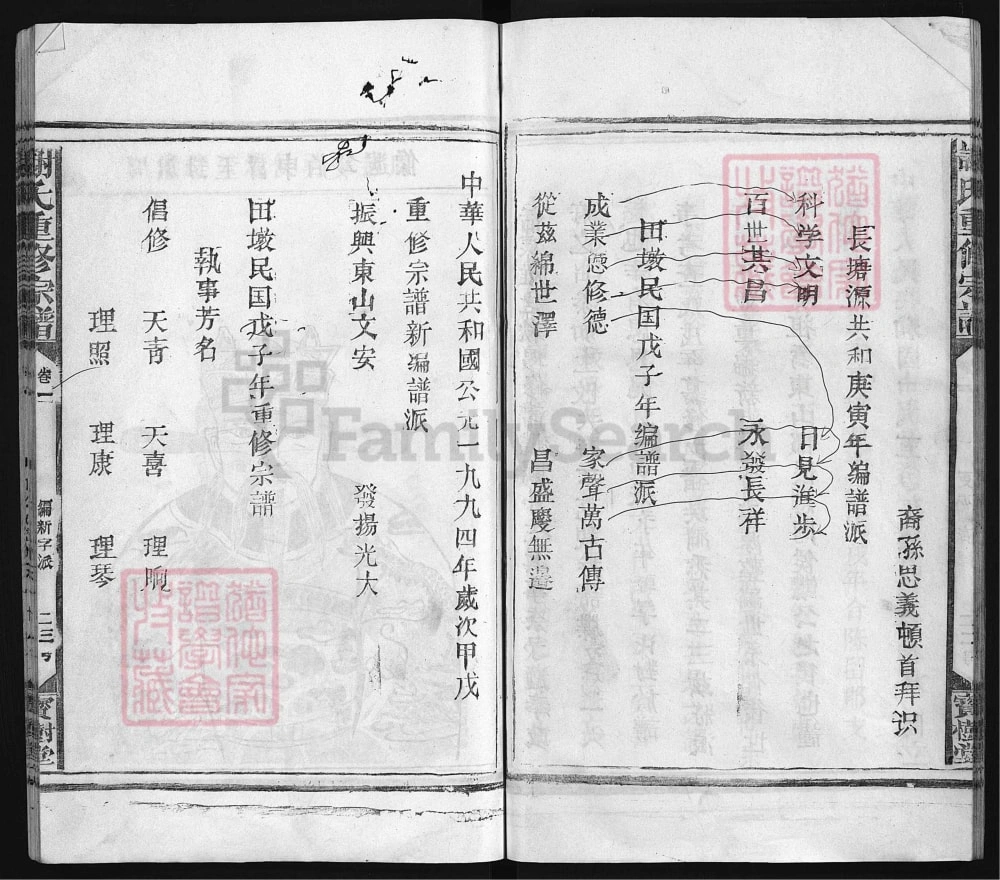 裔孫思義頓首拜识
長塘源共和庚寅年編譜派
科学文明 日見進步
百世其昌 永發長祥
田墩民国戊子年編譜派
成業懲修德 家聲萬古傳
從茲綿世澤 昌盛慶無邊
寶樹堂
中華人民共和國公元一九九四年歲次甲戊
重修宗譜新編譜派
振興東山文安 發揚光大
田墩民国戊子年重修宗譜
執事芳名
倡修 天青 天喜 理晌
理照 理康 理琴
謝氏重修宗譜 卷一 編新字派 二三 寶樹堂
FamilySearch